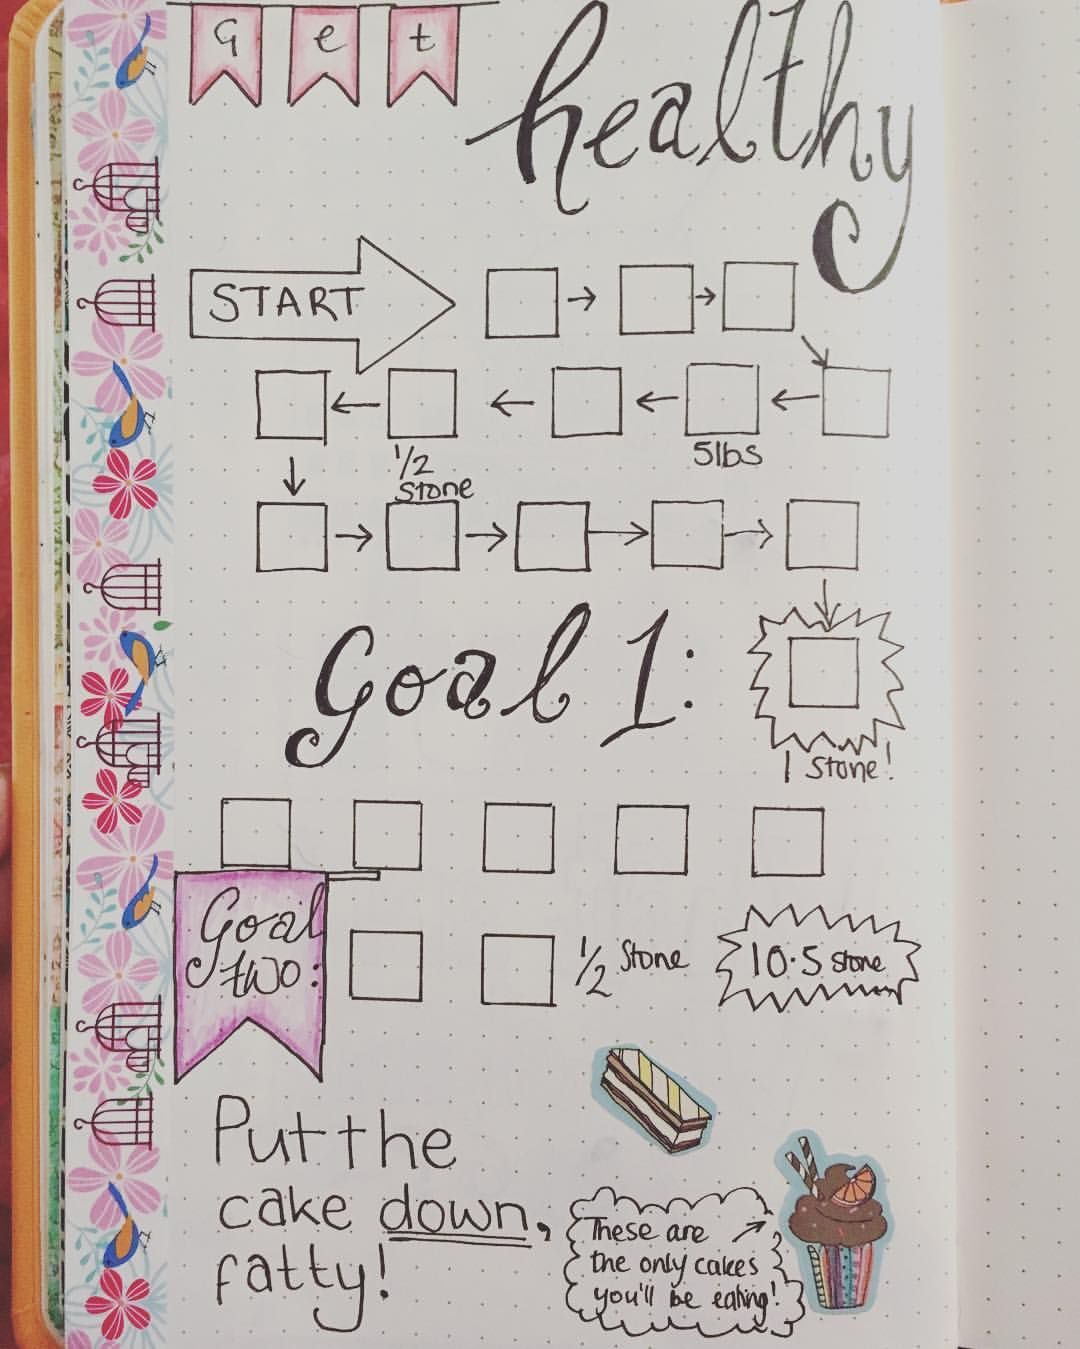 Get
healthy
START
5lbs
1/2
Stone
Goal 1:
1 Stone!
Goal
two:
1/2 Stone
10.5 stone
Put the
cake down,
fatty!
These are
the only cakes
you'll be eating!